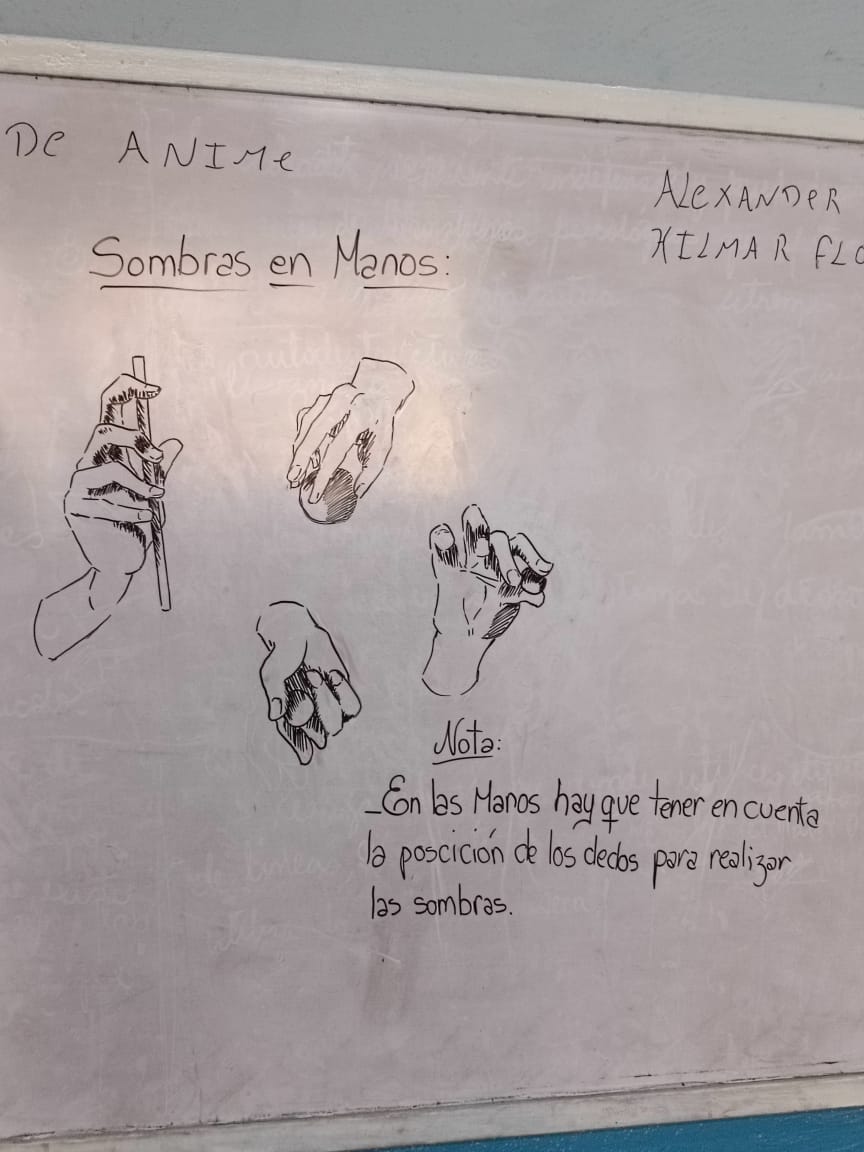 DE ANIME
ALEXANDER
Sombras en Manos:
Nota:
_En las Manos hay que tener en cuenta
la poscición de los dedos para realizar
las sombras.